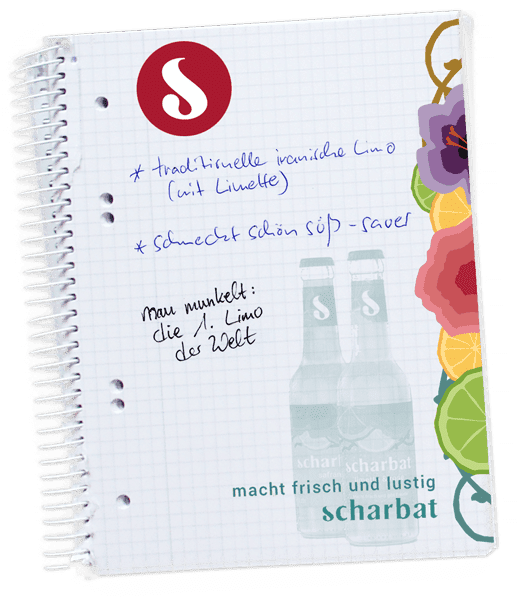 * traditionelle iranische Limo
(mit Limette)
* schmeckt schön süß-sauer
man munkelt:
die 1. Limo
der Welt
scharbat
scharbat
macht frisch und lustig
scharbat